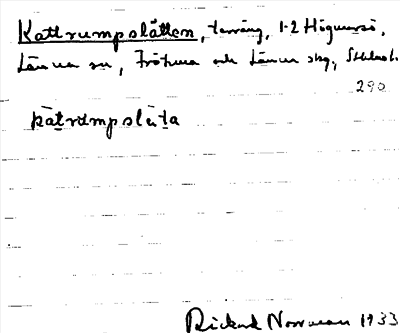 Kattrumpslåtten, terräng, 1-2 Högmarsö,
Länna sn, Frötuna och Länna skg, Sthlms l.
290
kat̠rumpslåt̠a
Rickard Norrman 1933